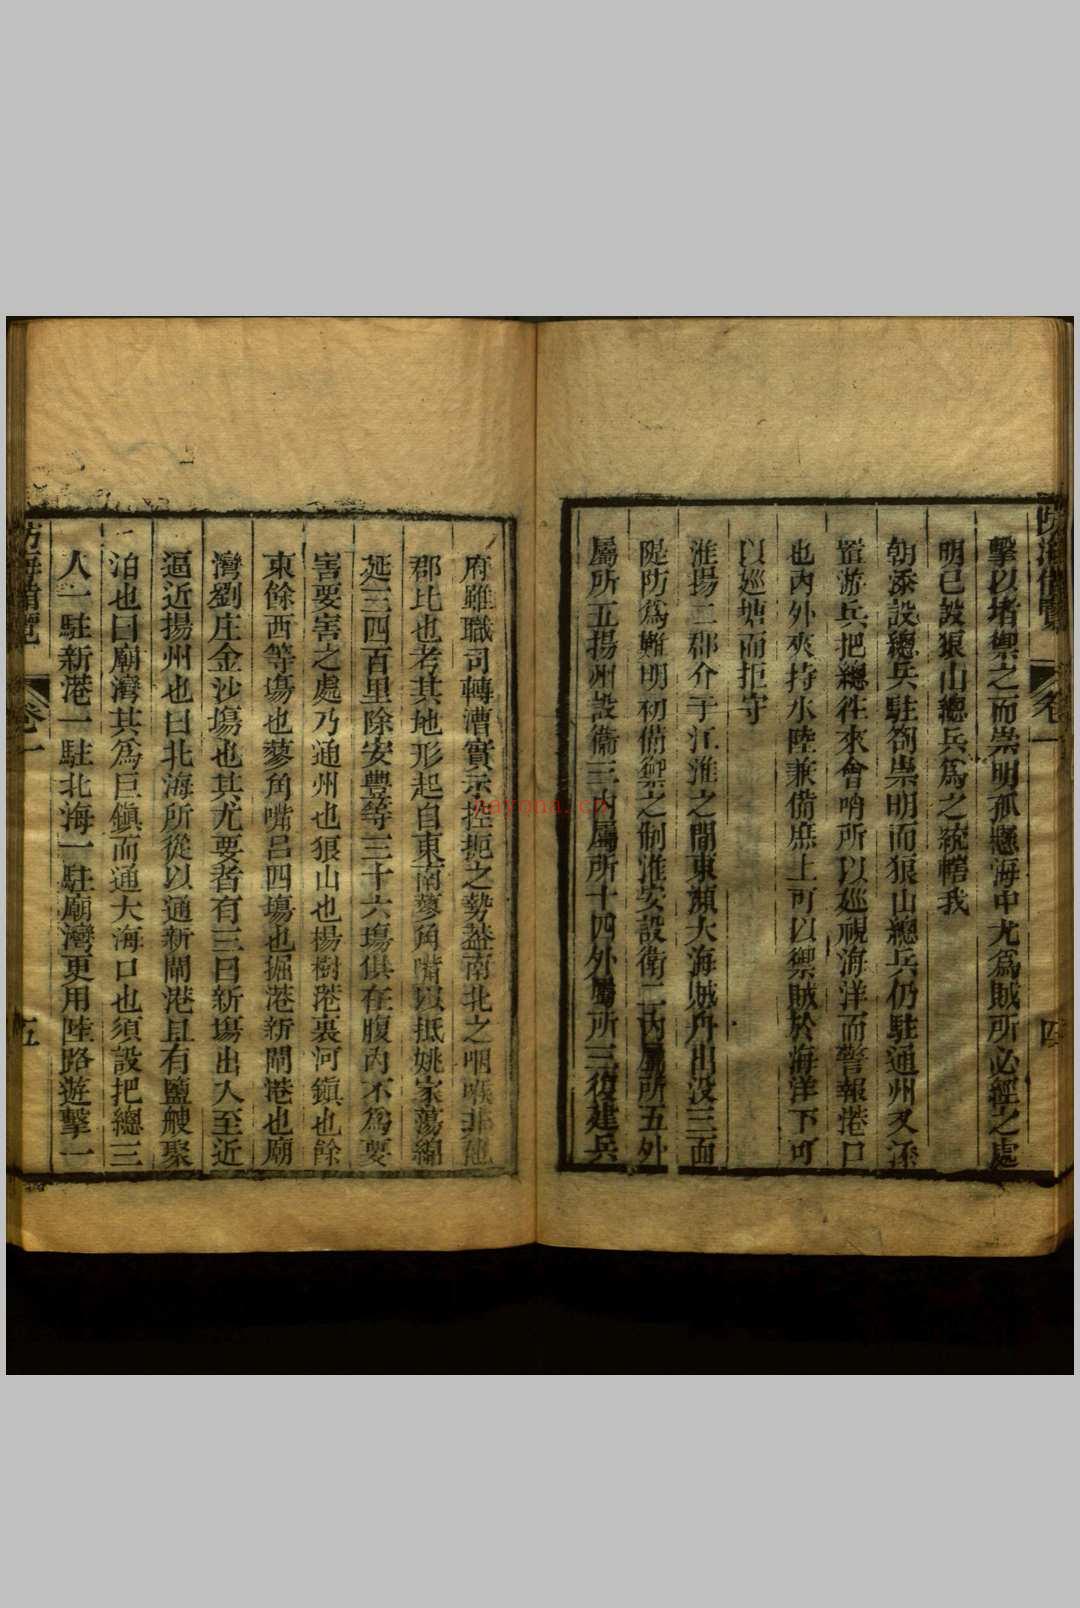 防海備覽 卷一 四
擊以堵禦之而崇明孤懸海中尤爲賊所必經之處
明已設狼山總兵爲之統轄我
朝添設總兵駐劄崇明而狼山總兵仍駐通州又添
置游兵把總往來會哨所以廵視海洋而警報港口
也內外夾持水陸兼備庶上可以禦賊於海洋下可
以廵塘而拒守
淮揚二郡介于江淮之間東瀕大海賊舟出没三面
隄防爲難明初備禦之制淮安設衛二內屬所五外
屬所五揚州設衛三內屬所十四外屬所三復建兵
府雖職司轉漕實示控扼之勢葢南北之咽喉非他
郡比也考其地形起自東南蓼角嘴以抵姚家蕩綿
延三四百里除安豐等三十六塲俱在腹內不爲要
害要害之處乃通州也狼山也楊樹港裏河鎮也餘
東餘西等塲也蓼角嘴呂四塲也掘港新閘港也廟
灣劉庄金沙塲也其尤要者有三曰新塲出入至近
逼近揚州也曰北海所從以通新閘港且有鹽艘聚
泊也曰廟灣其爲巨鎮而通大海口也須設把總三
人一駐新港一駐北海一駐廟灣更用陸路遊擊一
防海備覽 卷一 五
nayona.cn